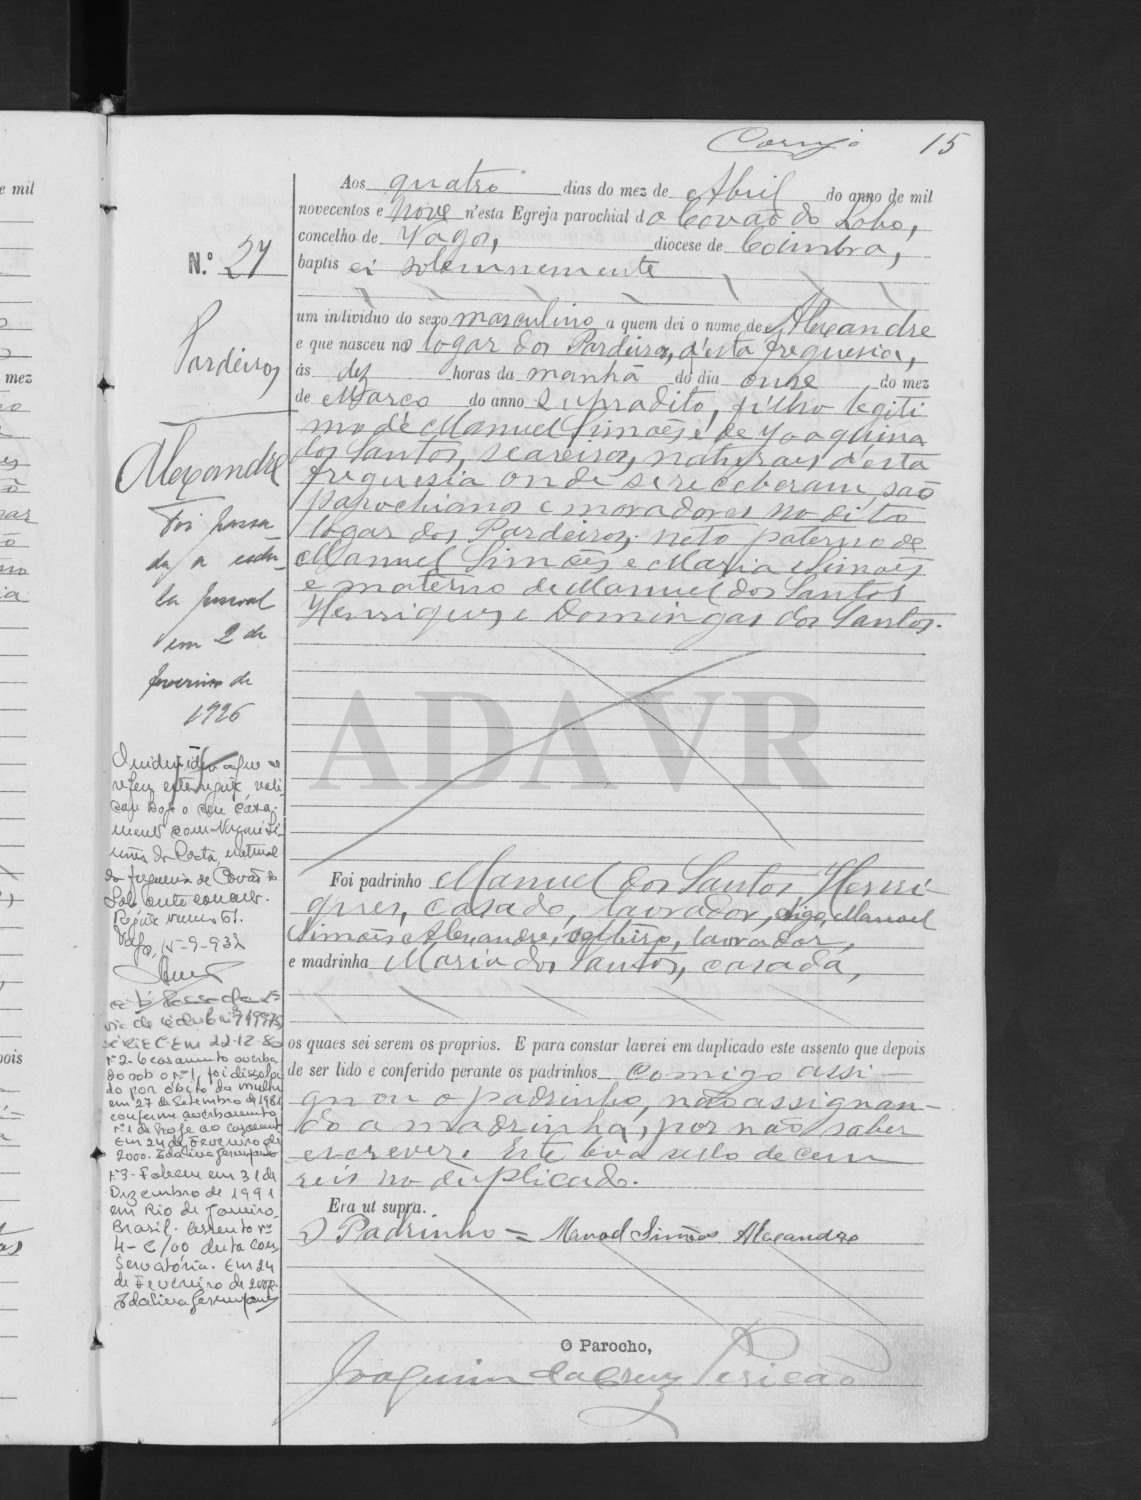 15
Aos quatro dias do mez de Abril do anno de mil
novecentos e nove n'esta Egreja parochial do Covão do Lobo,
concelho de Vagos, diocese de Coimbra,
baptisei solemnemente
N.º 27
um individuo do sexo masculino a quem dei o nome de Alexandre
e que nasceu no logar dos Pardeiros, d'esta freguesia,
ás dez horas da manhã do dia onze do mez
de Março do anno supradito, filho legiti
mo de Manuel Simões e de Joaquina
dos Santos, seareiros, naturaes d'esta
freguesia onde se receberam, são
parochianos e moradores no dito
logar dos Pardeiros; neto paterno de
Manuel Simões e Maria Simões
e materno de Manuel dos Santos
Henriques e Domingas dos Santos.
Pardeiros
Alexandre
Foi passa-
da a cedu-
la pessoal
em 2 de
fevereiro de
1926
O individuo a que se
refere este registo, reali-
sou hoje o seu casa-
mento com
da Costa, natural
da freguesia de Covão do
Lobo, deste concelho.
Registo numero
Vagos, 15-9-932
Foi passada 2ª
via de cedula
série C Em 22-12-80
Nº 2- O casamento averba
do sob o nº 1, foi dissolvi
do por óbito da mulher
em 27 de Setembro de 1981
conforme averbamento
nº 1 de hoje ao casamento
Em 24 de Fevereiro de
2000.
Nº 3- Faleceu em 31 de
Dezembro de 1991
em Rio de Janeiro,
Brasil. Assento nº
4-C/00 desta Con
servatória. Em 24
de Fevereiro de 2000.
ADAVR
Foi padrinho Manuel dos Santos Henri-
ques, casado, lavrador, digo, Manuel
Simões Alexandre, lavrador,
e madrinha Maria dos Santos, casada,
os quaes sei serem os proprios. E para constar lavrei em duplicado este assento que depois
de ser lido e conferido perante os padrinhos comigo assi-
gnou o padrinho, não assignan-
do a madrinha, por não saber
escrever. Este leva sello de cem
reis no duplicado.
Era ut supra.
O Padrinho = Manoel Simões Alexandre
O Parocho,
Joaquim da Cruz Pericão
e mil
mez
pois